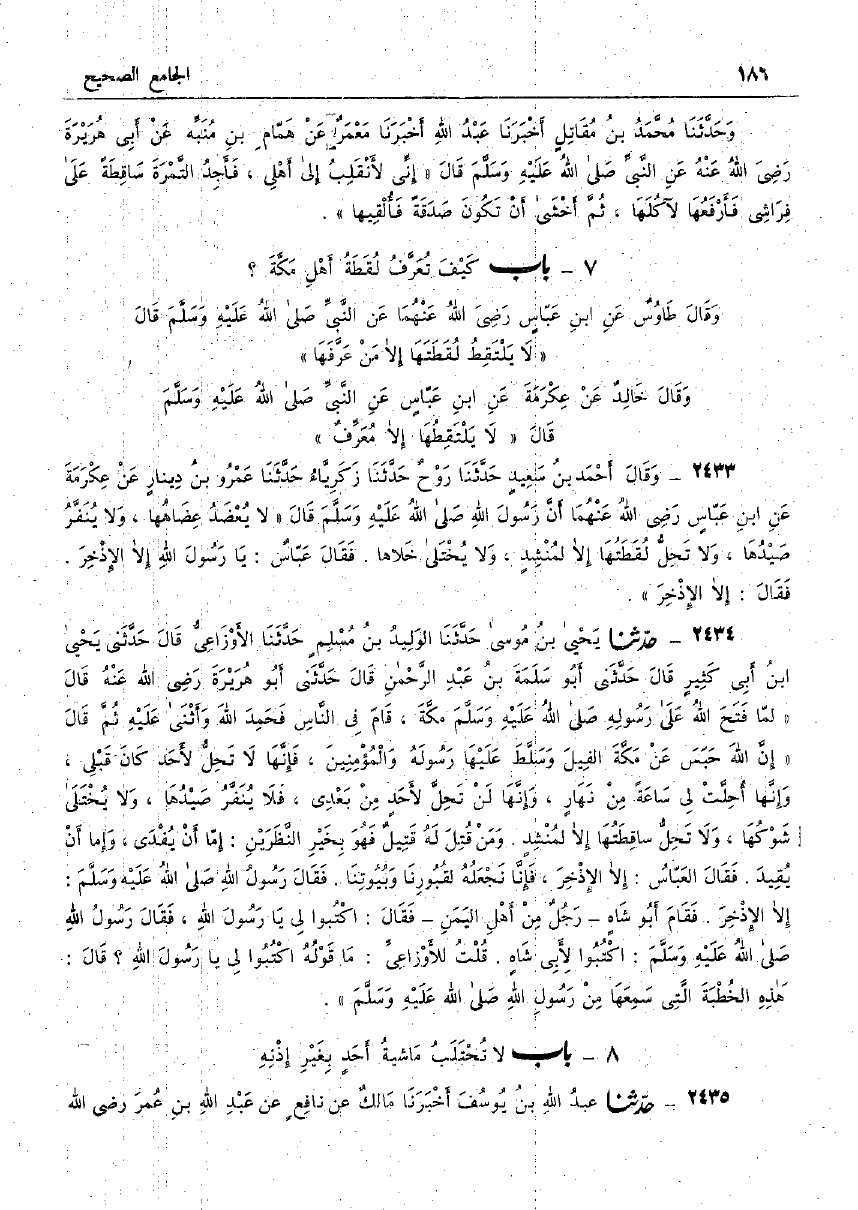 ١٨٦ الجامع الصحيح
وَحَدَّثَنَا مُحَمَّدُ بنُ مُقَاتِلٍ أَخْبَرَنَا عَبْدُ اللهِ أَخْبَرَنَا مَعْمَرٌ عَنْ هَمَّامِ بنِ مُنَبِّه عَنْ أَبِى هُرَيْرَةَ
رَضِىَ اللهُ عَنْهُ عَنِ النَّبِىِّ صَلىٰ اللهُ عَلَيْهِ وَسَلَّمَ قَالَ « إِنِّى لأَنْقَلِبُ إلىٰ أَهْلِى ، فَأَجِدُ التَّمْرَةَ سَاقِطَةً عَلَىٰ
فِرَاشِى فَأَرْفَعُهَا لآكُلَهَا ، ثُمَّ أَخْشَىٰ أَنْ تَكُونَ صَدَقَةً فَأُلْقِيها » .
٧ – باب كَيْفَ تُعَرَّفُ لُقَطَةُ أَهْلِ مَكَّةَ ؟
وَقَالَ طَاوُسٌ عَنِ ابنِ عَبَّاسٍ رَضِىَ اللهُ عَنْهُمَا عَن النَّبِىِّ صَلىٰ اللهُ عَلَيْهِ وَسَلَّمَ قَالَ
« لَا يَلْتَقِطُ لُقَطَتَهَا إلاَّ مَنْ عَرَّفَهَا »
وَقَالَ خَالِدٌ عَنْ عِكْرِمَةَ عَنِ ابنِ عَبَّاسٍ عَنِ النَّبِىِّ صَلىٰ اللهُ عَلَيْهِ وَسَلَّمَ
قَالَ « لَا يَلْتَقِطُهَا إلاَّ مُعَرِّفٌ »
٢٤٣٣ – وَقَالَ أَحْمَد بنُ سَعِيدٍ حَدَّثَنَا رَوْحٌ حَدَّثَنَا زَكَرِيَّاءُ حَدَّثَنَا عَمْرُو بنُ دِينارٍ عَنْ عِكْرِمَةَ
عَنِ ابنِ عَبَّاسٍ رَضِىَ اللهُ عَنْهُمَا أَنَّ رَسُولَ اللهِ صَلىٰ اللهُ عَلَيْهِ وَسَلَّمَ قَالَ « لا يُعْضَدُ عِضَاهُها ، وَلا يُنَفَّرُ
صَيْدُهَا ، وَلا تَحِلُّ لُقَطَتُهَا إلاَّ لمُنْشِدٍ ، وَلا يُخْتَلىٰ خَلاها . فَقَالَ عَبَّاسٌ : يَا رَسُولَ اللهِ إلاَّ الإِذْخِرَ .
فَقَالَ : إلاَّ الإِذْخِرَ » .
٢٤٣٤ – حدّثنا يَحْيىٰ بنُ مُوسىٰ حَدَّثَنَا الوَلِيدُ بنُ مُسْلِمٍ حَدَّثَنَا الأَوْزَاعِىُّ قَالَ حَدَّثَنى يَحْيىٰ
ابنُ أَبِى كَثِيرٍ قَالَ حَدَّثَنِى أَبُو سَلَمَةَ بنُ عَبْدِ الرَّحْمٰنِ قَالَ حَدَّثَنِى أَبُو هُرَيْرَةَ رَضِىَ الله عَنْهُ قَالَ
« لمَّا فَتَحَ اللهُ عَلَىٰ رَسُولِهِ صَلىٰ اللهُ عَلَيْهِ وَسَلَّمَ مكَّةَ ، قَامَ فى النَّاسِ فَحَمِدَ اللهَ وَأَثْنىٰ عَلَيْهِ ثُمَّ قَالَ
« إنَّ اللهَ حَبَسَ عَنْ مَكَّةَ الفِيلَ وَسَلَّطَ عَلَيْهَا رَسُولَهُ وَالْمُؤْمِنِينَ ، فَإِنَّهَا لَا تَحِلُّ لأَحَدٍ كَانَ قَبْلِى ،
وَإِنَّها أُحِلَّتْ لِى سَاعَةً مِنْ نَهَارٍ ، وَإِنَّهَا لَنْ تَحِلَّ لأَحَدٍ مِنْ بَعْدِى ، فَلَا يُنَفَّرُ صَيْدُهَا ، وَلا يُخْتَلىٰ
شَوْكُهَا ، وَلَا تَحِلُّ ساقِطَتُهَا إلاَّ لمُنْشِدٍ . وَمَنْ قُتِلَ لَهُ قَتِيلٌ فَهُوَ بِخَيْرِ النَّظَرَيْنِ : إمَّا أَنْ يُفْدَى ، وَإما أَنْ
يُقِيدَ . فَقَالَ العَبَّاسُ : إلاَّ الإِذْخِرَ ، فَإِنَّا نَجْعَلُهُ لقُبُورِنَا وَبُيُوتِنَا . فَقَالَ رَسُولُ اللهِ صَلىٰ اللهُ عَلَيْهِ وَسَلَّمَ :
إلاَّ الإِذْخِرَ . فَقَامَ أَبُو شَاهٍ – رَجُلٌ مِنْ أَهْلِ اليَمَنِ – فَقَالَ : اكْتُبوا لِى يَا رَسُولَ اللهِ ، فَقَالَ رَسُولُ اللهِ
صَلىٰ اللهُ عَلَيْهِ وَسَلَّمَ : اكْتُبُوا لِأَبِى شَاهٍ . قُلْتُ للأَوْزَاعِىِّ : مَا قَوْلُهُ اكْتُبُوا لِى يا رَسُولَ اللهِ ؟ قَالَ :
هٰذِهِ الخُطْبَةَ الَّتِى سَمِعَهَا مِنْ رَسُولِ اللهِ صَلىٰ الله عَلَيْهِ وَسَلَّمَ » .
٨ – باب لا تُحْتَلَبُ مَاشيةُ أَحَدٍ بِغَيْرِ إذْنِهِ
٢٤٣٥ – حدّثنا عبدُ اللهِ بنُ يُوسُفَ أَخْبَرَنَا مَالكٌ عن نافِعٍ عن عَبْدِ اللهِ بنِ عُمرَ رضى الله